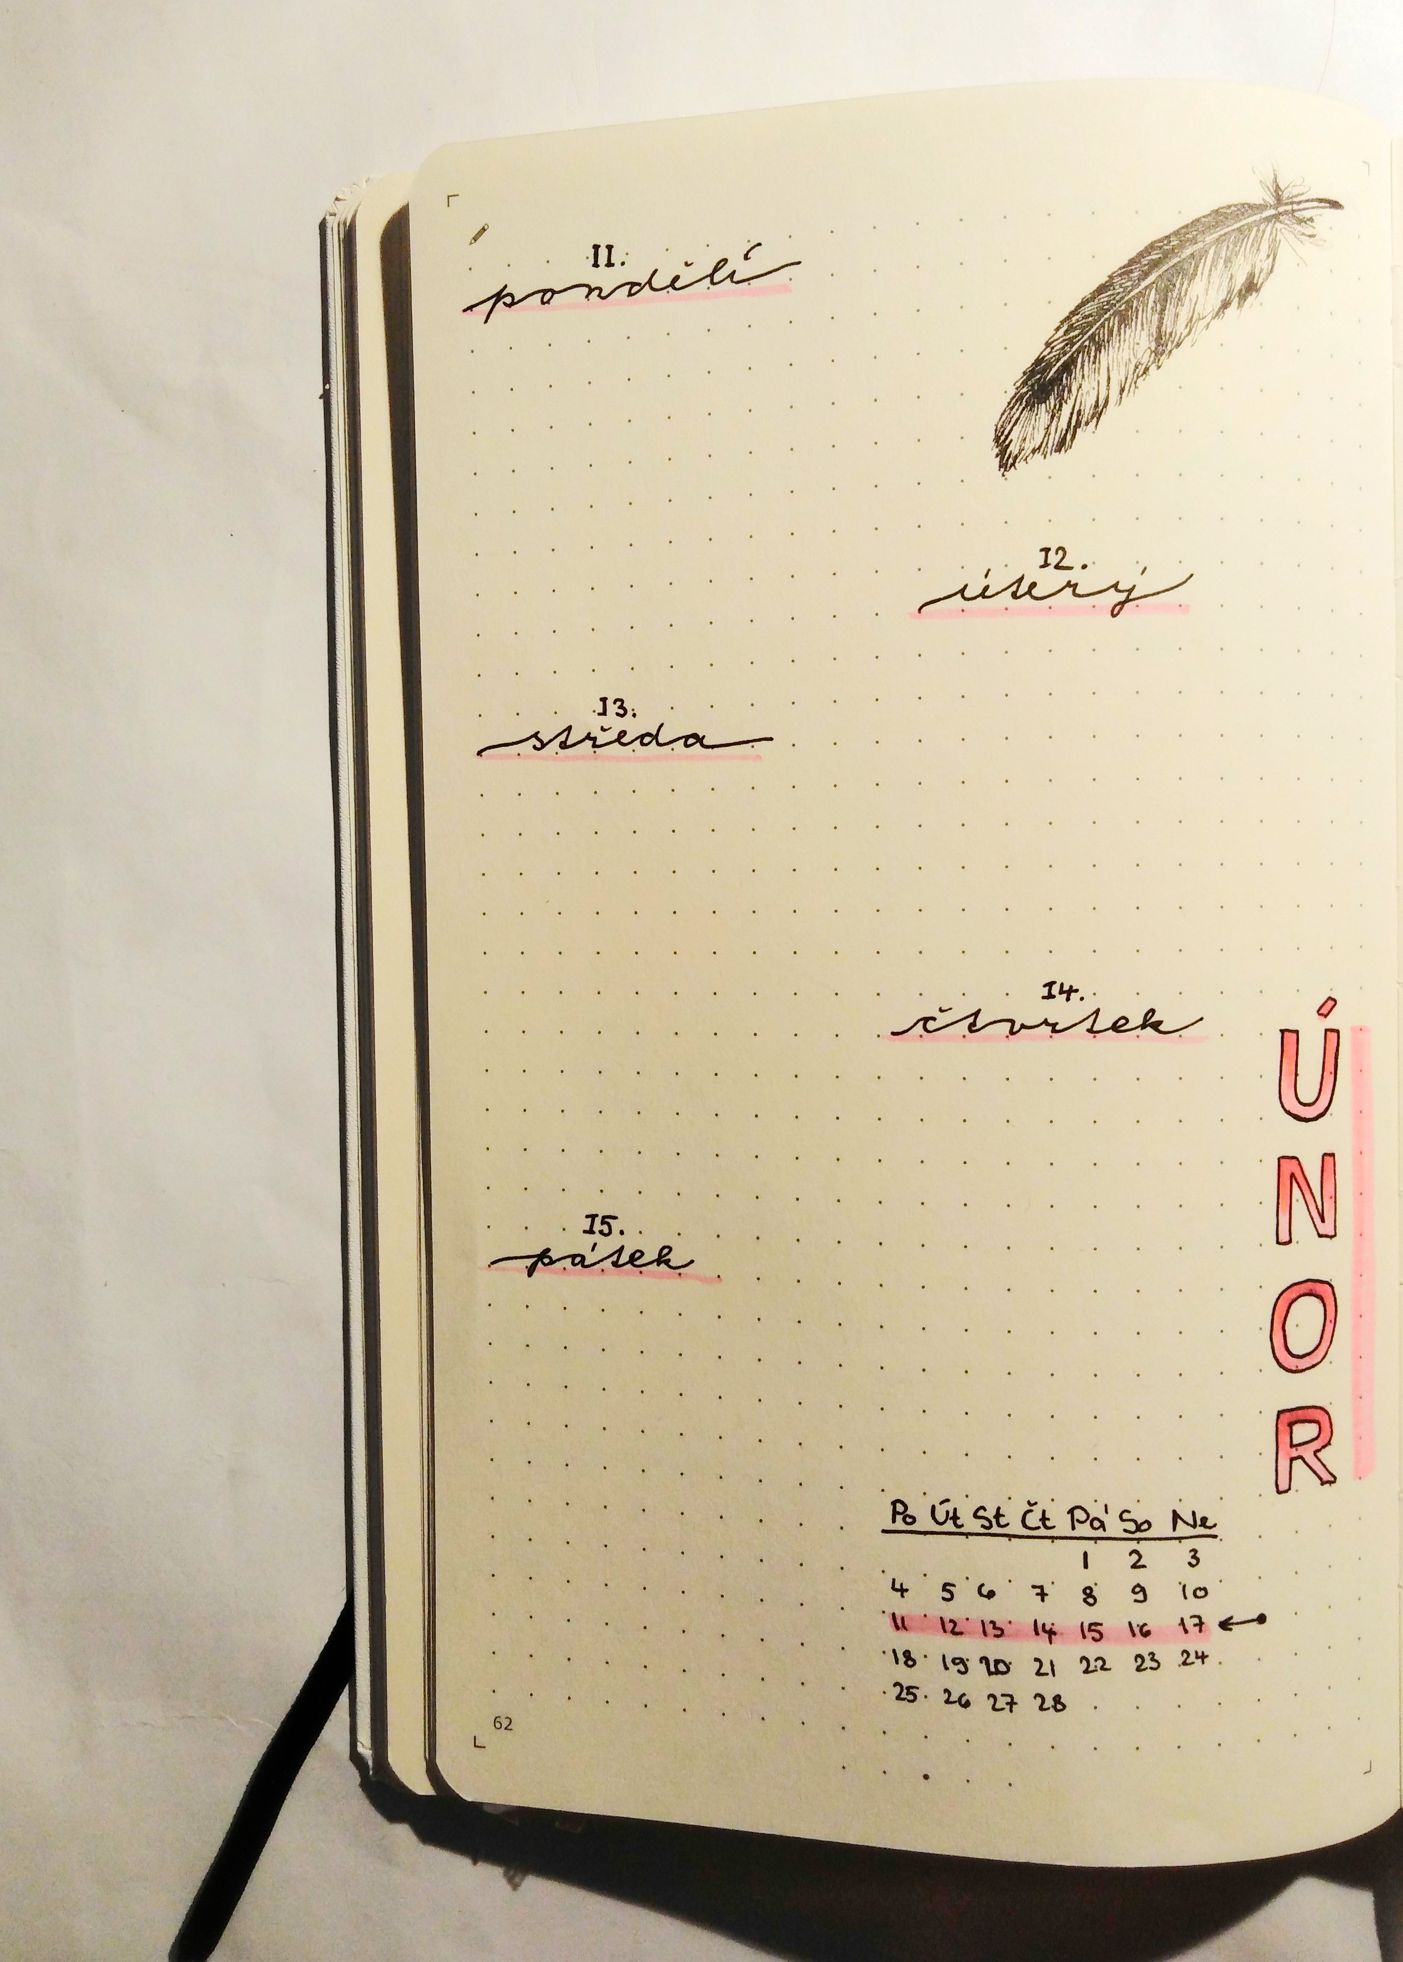 11.
pondělí
12.
úterý
13.
středa
14.
čtvrtek
15.
pátek
ÚNOR
Po Út St Čt Pá So Ne
1 2 3
4 5 6 7 8 9 10
11 12 13 14 15 16 17
18 19 20 21 22 23 24
25 26 27 28
62